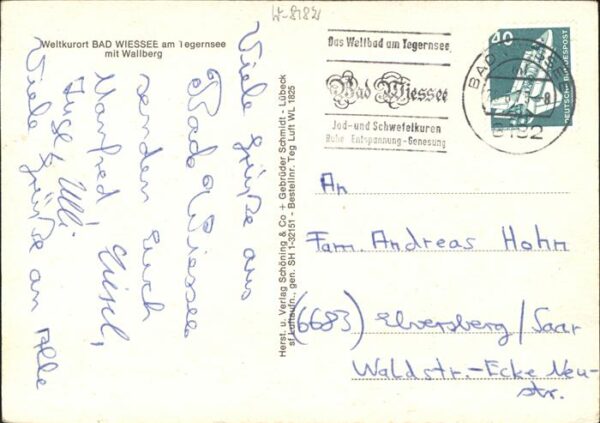 W-8182
Weltkurort BAD WIESSEE am Tegernsee
mit Wallberg
Viele Grüße aus
Bad Wiessee
senden Euch
Manfred, Liesel,
Uli
Viele Grüße an Alle
Herst. u. Verlag Schöning & Co + Gebrüder Schmidt - Lübeck
sf Luftaufn., gen. SH 1-32151 - Bestellnr. Teg Luft WL 1825
Das Weltbad am Tegernsee
Bad Wiessee
Jod- und Schwefelkuren
Ruhe Entspannung - Genesung
BAD
8182
40
DEUTSCHE BUNDESPOST
An
Fam. Andreas Hohn
(6683) Elversberg/Saar
Waldstr.-Ecke Neu-
str.